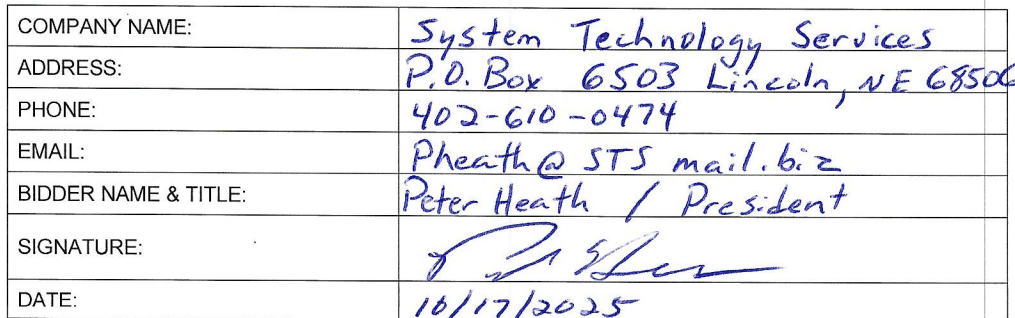 COMPANY NAME: System Technology Services
ADDRESS: P.O. Box 6503 Lincoln, NE 68506
PHONE: 402-610-0474
EMAIL: Pheath@STSmail.biz
BIDDER NAME & TITLE: Peter Heath / President
SIGNATURE:
DATE: 10/17/2025